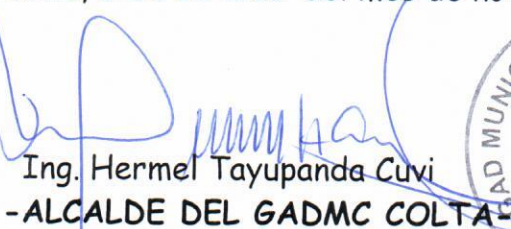 Ing. Hermel Tayupanda Cuvi
-ALCALDE DEL GADMC COLTA-
GAD MUNIC